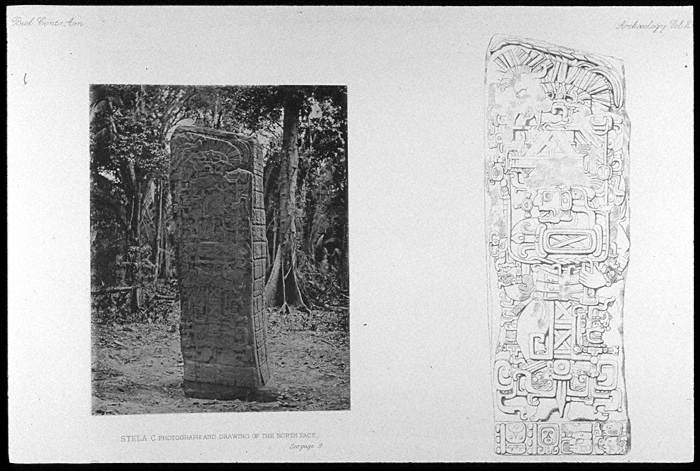 Biol. Centr. Am.
Archæology Vol. II.
STELA C. PHOTOGRAPH AND DRAWING OF THE NORTH FACE.
See page 9.